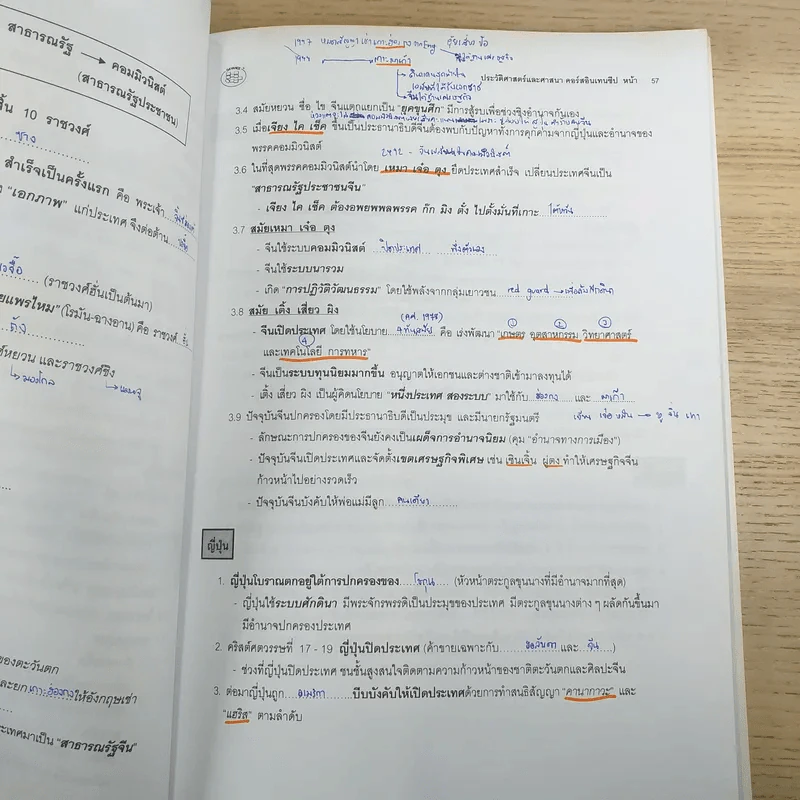 สาธารณรัฐ → คอมมิวนิสต์
(สาธารณรัฐประชาชน)
สิ้น 10 ราชวงศ์
ซาง
สำเร็จเป็นครั้งแรก คือ พระเจ้า
"เอกภาพ" แก่ประเทศ จึงต่อต้าน
(ราชวงศ์ฮั่นเป็นต้นมา)
ยแพรไหม" (โรมัน-ฉางอาน) คือ ราชวงศ์ ฮั่น
ถัง
หยวน และราชวงศ์ชิง
มองโกล
ของตะวันตก
และยก เกาะฮ่องกง ให้อังกฤษเช่า
ระเทศมาเป็น "สาธารณรัฐจีน"
1997
1999
ประวัติศาสตร์และศาสนา คอร์สอินเทนซีป หน้า 57
3.4 สมัยหยวน ซื่อ ไข จีนแตกแยกเป็น "ยุคขุนศึก" มีการสู้รบเพื่อช่วงชิงอำนาจกันเอง
3.5 เมื่อเจียง ไค เช็ค ขึ้นเป็นประธานาธิบดีจีนต้องพบกับปัญหาทั้งการคุกคามจากญี่ปุ่นและอำนาจของ
พรรคคอมมิวนิสต์
2492
3.6 ในที่สุดพรรคคอมมิวนิสต์นำโดย เหมา เจ๋อ ตุง ยึดประเทศสำเร็จ เปลี่ยนประเทศจีนเป็น
"สาธารณรัฐประชาชนจีน"
- เจียง ไค เช็ค ต้องอพยพพลพรรค ก๊ก มิง ตั๋ง ไปตั้งมั่นที่เกาะ ไต้หวัน
3.7 สมัยเหมา เจ๋อ ตุง
- จีนใช้ระบบคอมมิวนิสต์ ปิดประเทศ พึ่งตนเอง
- จีนใช้ระบบนารวม
- เกิด "การปฏิวัติวัฒนธรรม" โดยใช้พลังจากกลุ่มเยาวชน red guard
3.8 สมัย เติ้ง เสี่ยว ผิง
(ค.ศ. 1978)
- จีนเปิดประเทศ โดยใช้นโยบาย 4 ทันสมัย คือ เร่งพัฒนา "เกษตร อุตสาหกรรม วิทยาศาสตร์
และเทคโนโลยี การทหาร"
- จีนเป็นระบบทุนนิยมมากขึ้น อนุญาตให้เอกชนและต่างชาติเข้ามาลงทุนได้
- เติ้ง เสี่ยว ผิง เป็นผู้คิดนโยบาย "หนึ่งประเทศ สองระบบ" มาใช้กับ ฮ่องกง และ มาเก๊า
3.9 ปัจจุบันจีนปกครองโดยมีประธานาธิบดีเป็นประมุข และมีนายกรัฐมนตรี เจียง เจ๋อ หมิน → หู จิ่น เทา
- ลักษณะการปกครองของจีนยังคงเป็นเผด็จการอำนาจนิยม (คุม "อำนาจทางการเมือง")
- ปัจจุบันจีนเปิดประเทศและจัดตั้งเขตเศรษฐกิจพิเศษ เช่น เซินเจิ้น ผู่ตง ทำให้เศรษฐกิจจีน
ก้าวหน้าไปอย่างรวดเร็ว
- ปัจจุบันจีนบังคับให้พ่อแม่มีลูก คนเดียว
ญี่ปุ่น
1. ญี่ปุ่นโบราณตกอยู่ใต้การปกครองของ โชกุน (หัวหน้าตระกูลขุนนางที่มีอำนาจมากที่สุด)
- ญี่ปุ่นใช้ระบบศักดินา มีพระจักรพรรดิเป็นประมุขของประเทศ มีตระกูลขุนนางต่าง ๆ ผลัดกันขึ้นมา
มีอำนาจปกครองประเทศ
2. คริสต์ศตวรรษที่ 17 - 19 ญี่ปุ่นปิดประเทศ (ค้าขายเฉพาะกับ ฮอลันดา และ จีน)
- ช่วงที่ญี่ปุ่นปิดประเทศ ชนชั้นสูงสนใจติดตามความก้าวหน้าของชาติตะวันตกและศิลปะจีน
3. ต่อมาญี่ปุ่นถูก อเมริกา บีบบังคับให้เปิดประเทศด้วยการทำสนธิสัญญา "คานากาวะ" และ
"แฮริส" ตามลำดับ